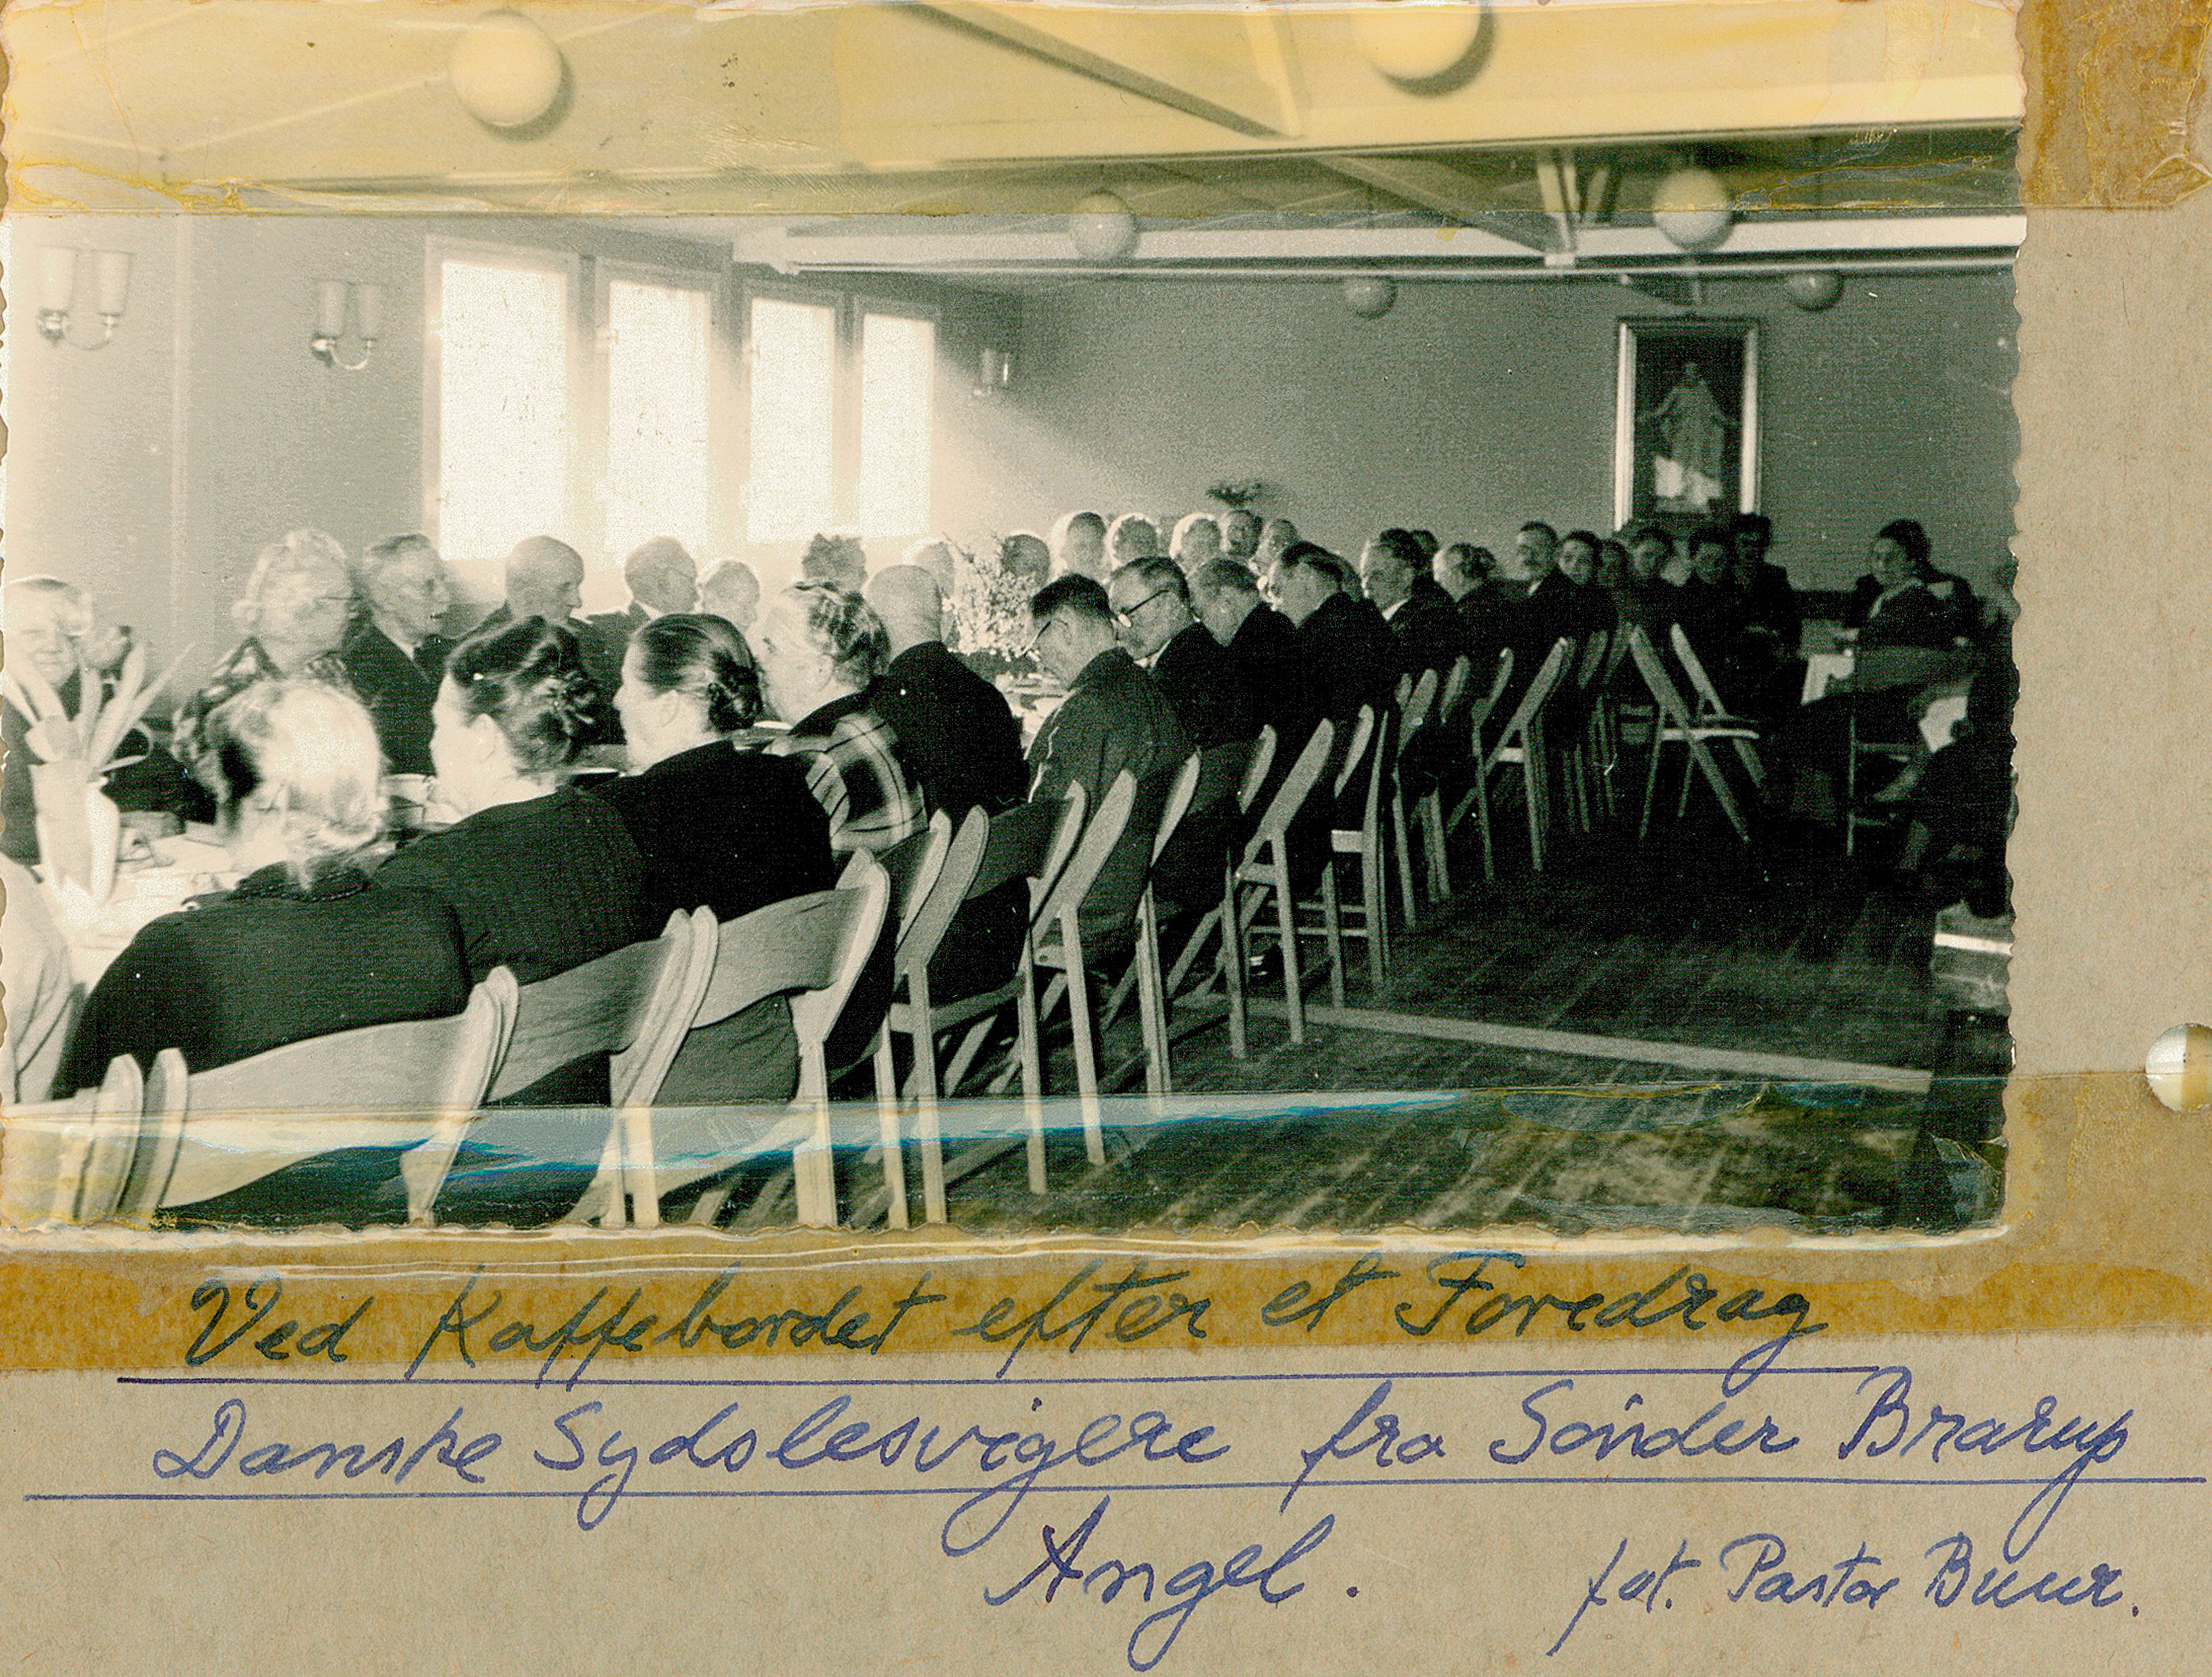 Ved Kaffebordet efter et Foredrag
Danske Sydslesvigere fra Sönder Brarup
Angel.
fot. Pastor Buur.